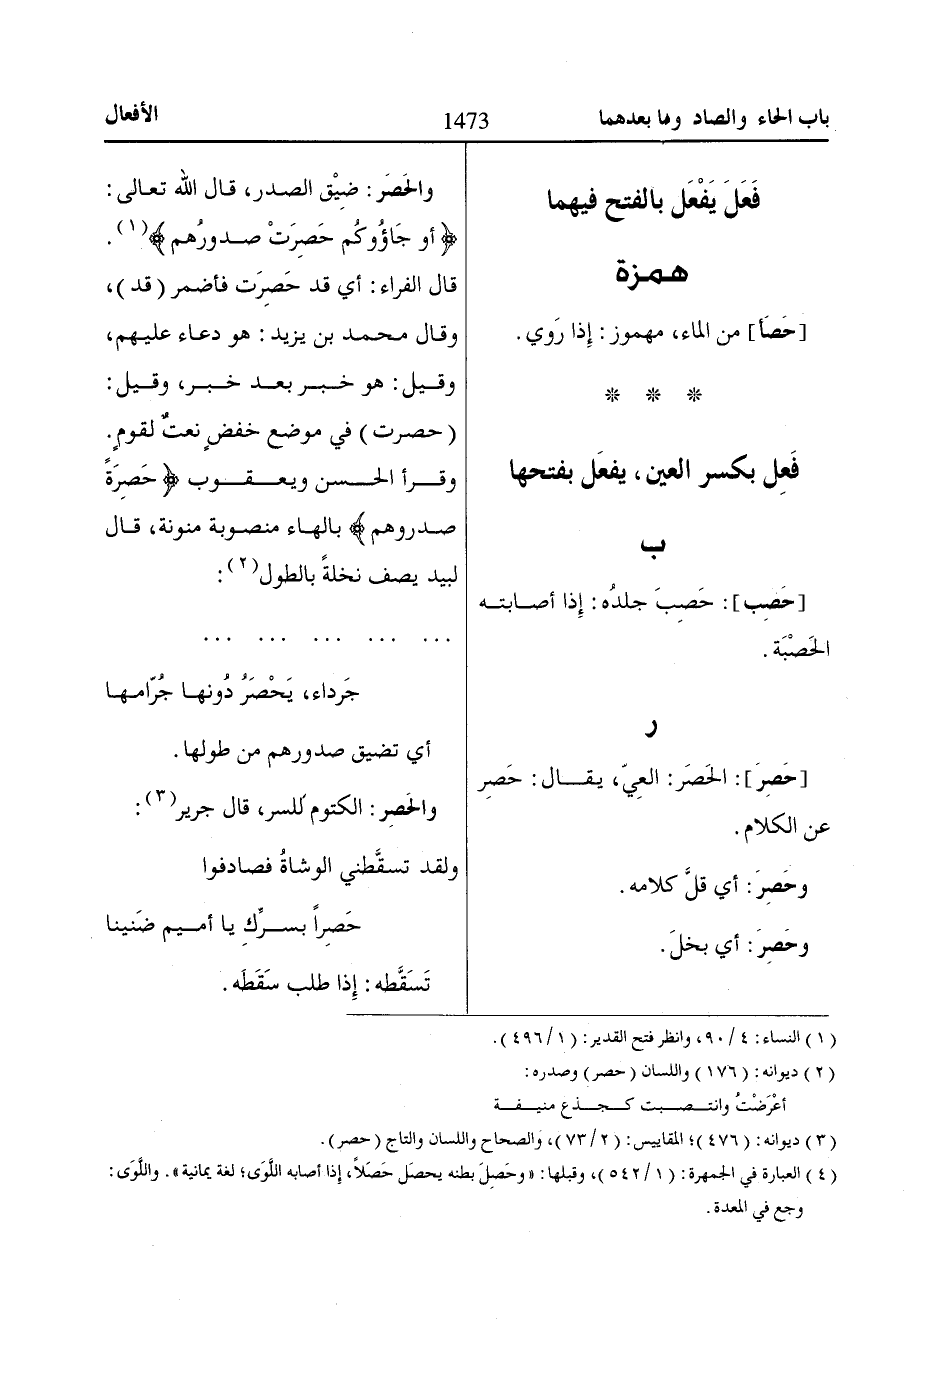 باب الحاء والصاد وما بعدهما
1473
الأفعال
فَعَلَ يَفْعَل بالفتح فيهما
همزة
[حَصَأ] من الماء، مهموز: إِذا رَوي.
* * *
فَعِل بكسر العين، يفعَل بفتحها
ب
[حَصِب]: حَصِبَ جلدُه: إِذا أصابته
الحَصْبَة.
ر
[حَصِرَ]: الحَصَرَ: العيّ، يقال: حَصِر
عن الكلام.
وحَصِرَ: أي قلَّ كلامه.
وحَصِرَ: أي بخلَ.
والحَصَر: ضيْق الصدر، قال الله تعالى:
﴿أو جَاؤُوكُم حَصِرَتْ صدورُهم﴾(١).
قال الفراء: أي قد حَصِرَت فأضمر (قد)،
وقال محمد بن يزيد: هو دعاء عليهم،
وقيل: هو خبر بعد خبر، وقيل:
(حصرت) في موضع خفضٍ نعتٌ لقومٍ.
وقرأ الحسن ويعقوب ﴿حَصِرَةً
صدروهم﴾ بالهاء منصوبة منونة، قال
لبيد يصف نخلةً بالطول(٢):
... ... ... ... ...
جَرداء، يَحْصَرُ دُونها جُرّامها
أي تضيق صدورهم من طولها.
والحَصِر: الكتوم للسر، قال جرير(٣):
ولقد تسقَّطني الوشاةُ فصادفوا
حَصِراً بسرِّك يا أميم ضَنينا
تَسَقَّطه: إِذا طلب سَقَطَه.
(١) النساء: ٤/٩٠، وانظر فتح القدير: (١/٤٩٦).
(٢) ديوانه: (١٧٦) واللسان (حصر) وصدره:
أعْرَضْتُ وانتصبت كجذع منيفة
(٣) ديوانه: (٤٧٦)؛ المقاييس: (٢/٧٣)، والصحاح واللسان والتاج (حصر).
(٤) العبارة في الجمهرة: (١/٥٤٢)، وقبلها: «وحَصِلَ بطنه يحصَل حَصَلاً، إِذا أصابه اللَّوَى؛ لغة يمانية». واللَّوَى:
وجع في المعدة.